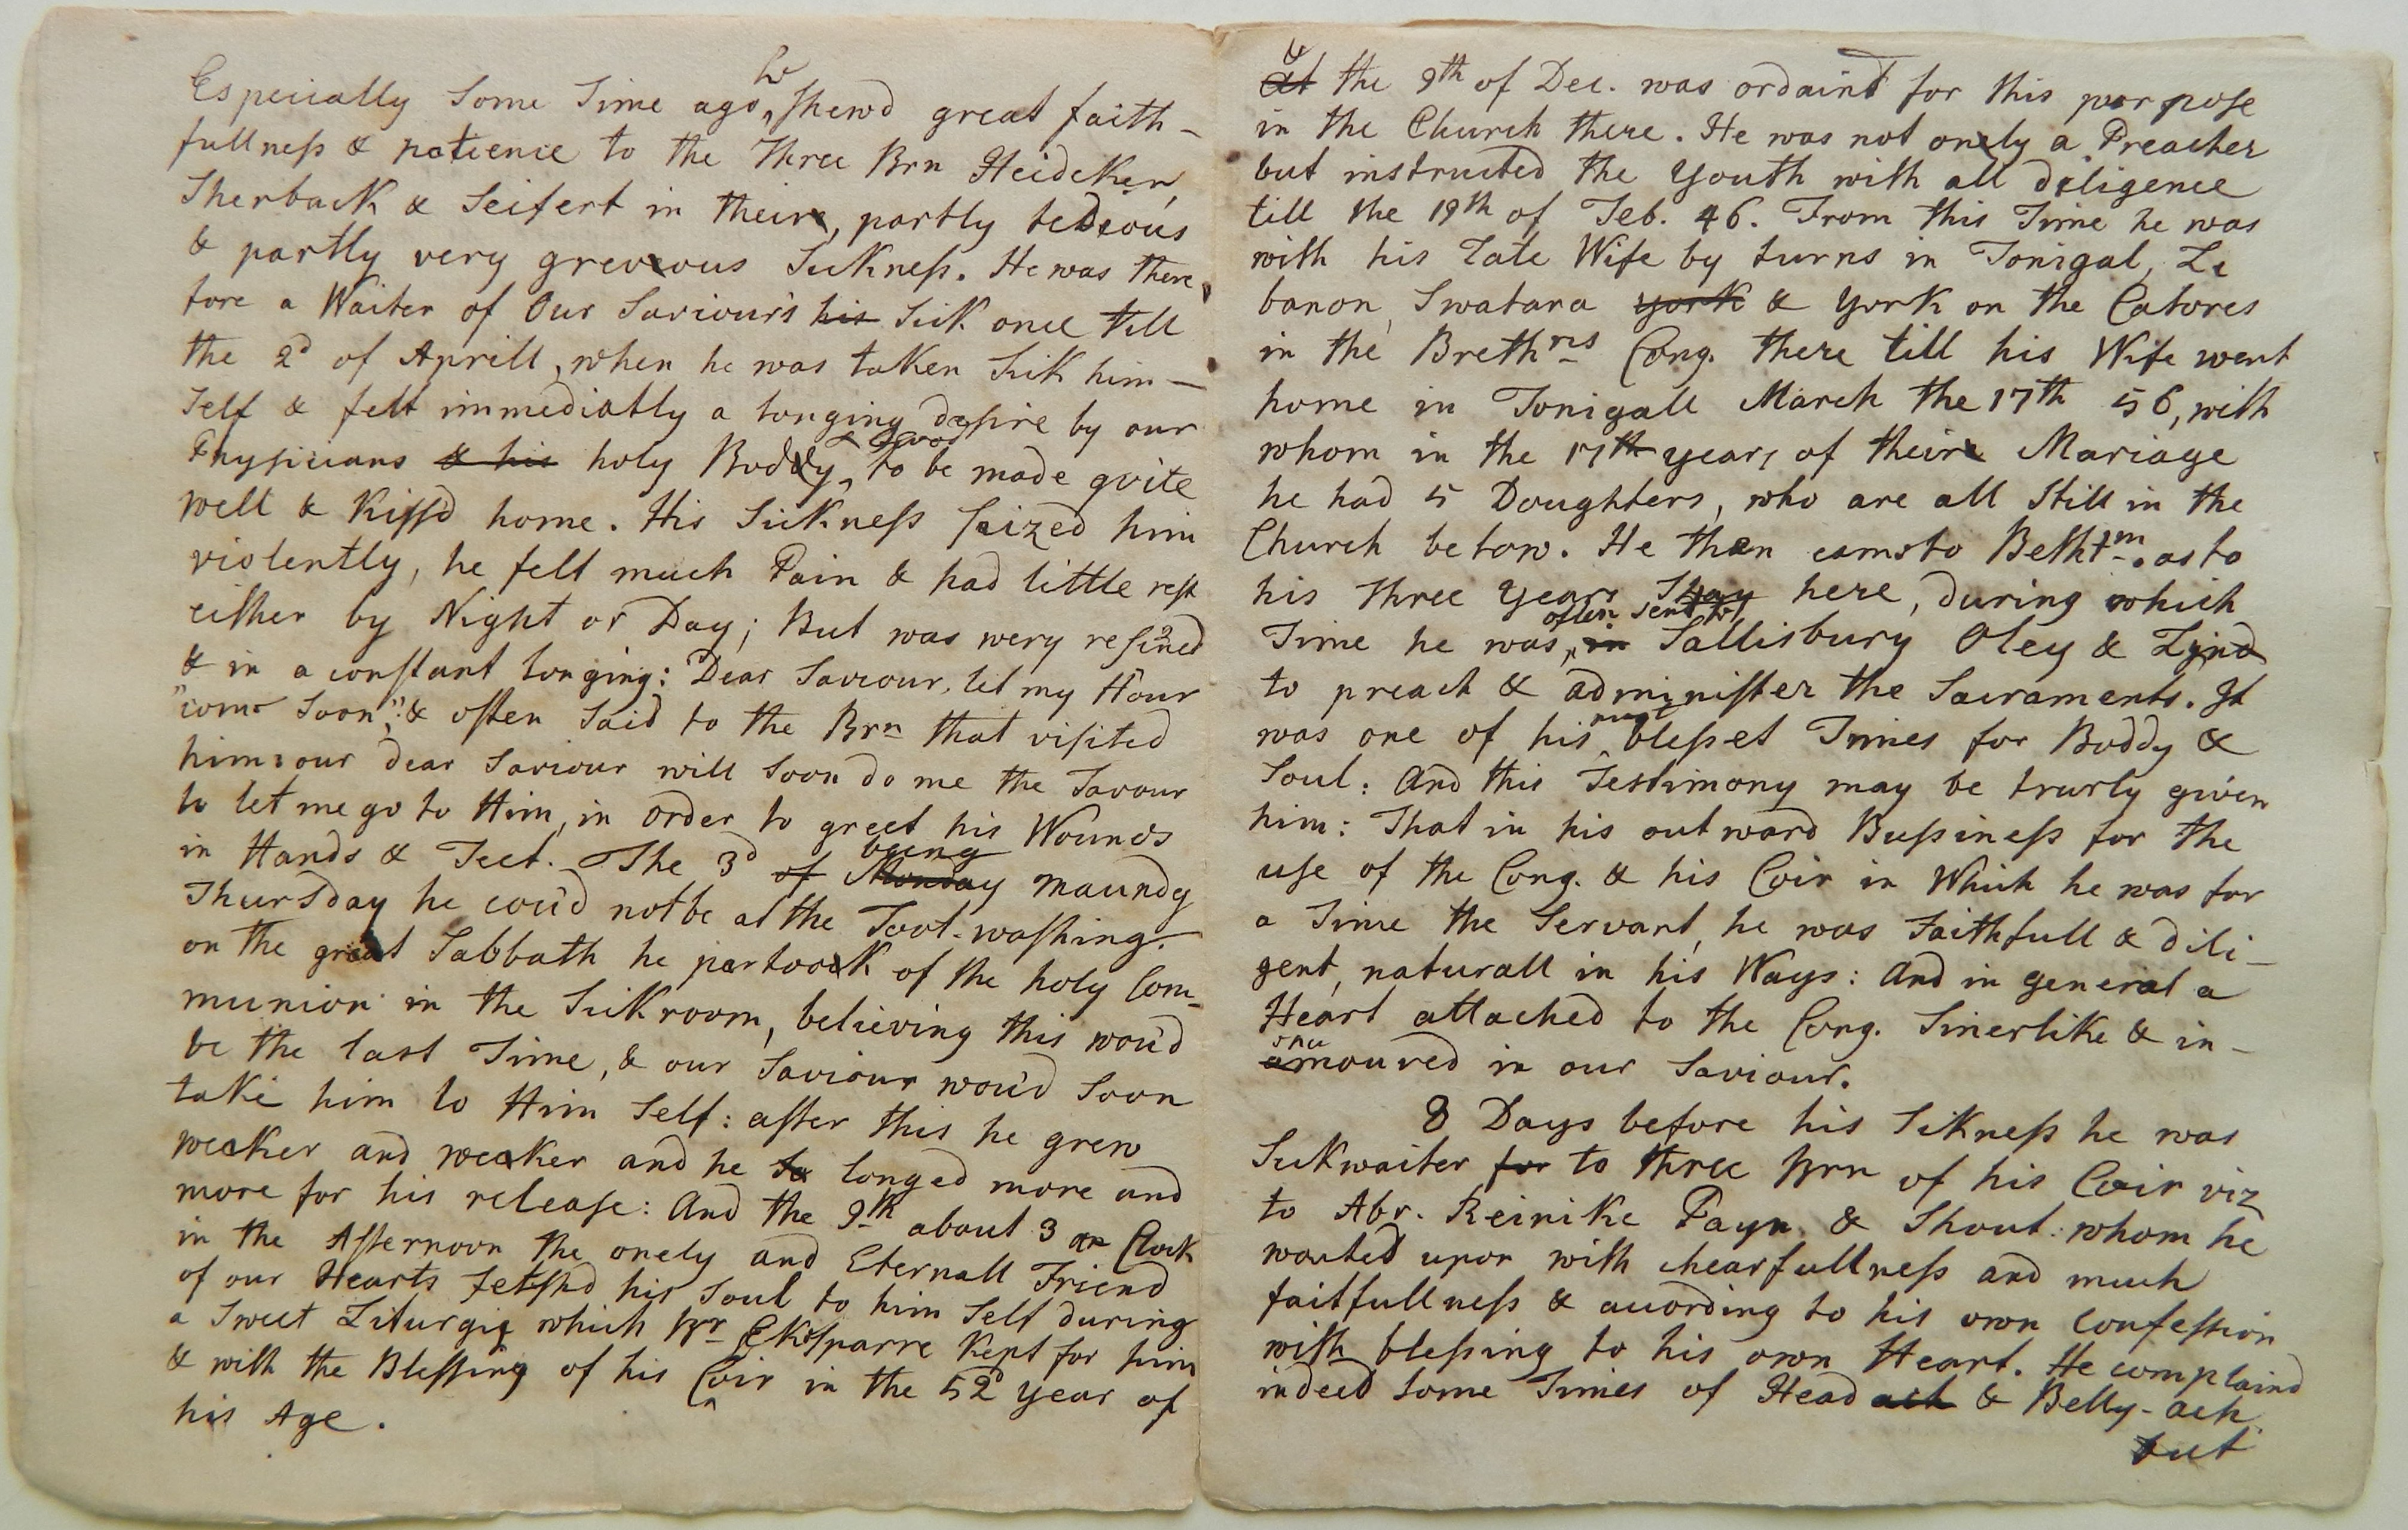 Especially Some Time ago he shewd great faith-
fullness & patience to the Three Brn Heideker,
Sherback & Seifert in their, partly tedious
& partly very grevous Sickness. He was there,
fore a Waiter of Our Saviour's his Sick once till
the 2d of Aprill, when he was taken Sick him-
Self & felt immediatly a longing desire by our
Physicians & his holy Boddy, & to be made quite
well & Kissd home. His Sickness Seized him
violently, he felt much Pain & had little rest
either by Night or Day; But was very resined
& in a constant longing: Dear Saviour, let my Hour
"come Soon", & often Said to the Brn that visited
him: our dear Saviour will Soon do me the Favour
to let me go to Him, in order to greet his Wounds
in Hands & Feet. The 3d of being Monday maundy
Thursday he cou'd not be at the Foot-washing.
on the great Sabbath he partook of the holy Com-
munion in the Sickroom, believing this wou'd
be the last Time, & our Saviour wou'd Soon
take him to Him Self: after this he grew
weaker and weaker and he longed more and
more for his release: And the 9th about 3 Clock
in the Afternoon the onely and Eternall Friend
of our Hearts Fetshd his Soul to him Self during
a Sweet Liturgie which Br Ekesparre Kept for him
& with the Blessing of his Coir in the 52d year of
his Age.
At & the 9th of Dec. was ordaind for this purpose
in the Church there. He was not onely a Preacher
but instructed the Youth with all diligence
till the 19th of Feb. 46. From this Time he was
with his Late Wife by turns in Donigal, Le
banon, Swatara york & York on the Catores
in the Brethrns Cong. there till his Wife went
home in Donigall March the 17th 56, with
whom in the 17th year, of their Mariage
he had 5 Doughters, who are all Still in the
Church below. He then came to Bethlm. as to
his three Years Stay here, during which
Time he was, in often sent to Sallisbury Oley & Lynd
to preach & administer the Sacraments. It
was one of his most blesset Times for Boddy &
Soul: And this Testimony may be trurly given
him: That in his outward Bussiness for the
use of the Cong. & his Coir in Which he was for
a Time the Servant, he was Faithfull & dili-
gent, naturall in his Ways: And in general a
Heart attached to the Cong. Sinerlike & in-
amoured in our Saviour.
8 Days before his Sickness he was
Sickwaiter for to three Brn of his Coir viz
to Abr. Reinike Payn & Shout: whom he
waited upon with chearfullness and much
faitfullness & acording to his own Confession
with blessing to his own Heart. He complaind
indeed Some Times of Head ach & Belly-ach
but